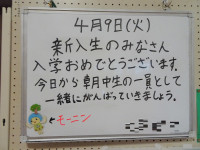 4月9日(火)
新入生のみなさん
入学おめでとうございます。
今日から朝中生の一員として
一緒にがんばっていきましょう。
モーニン